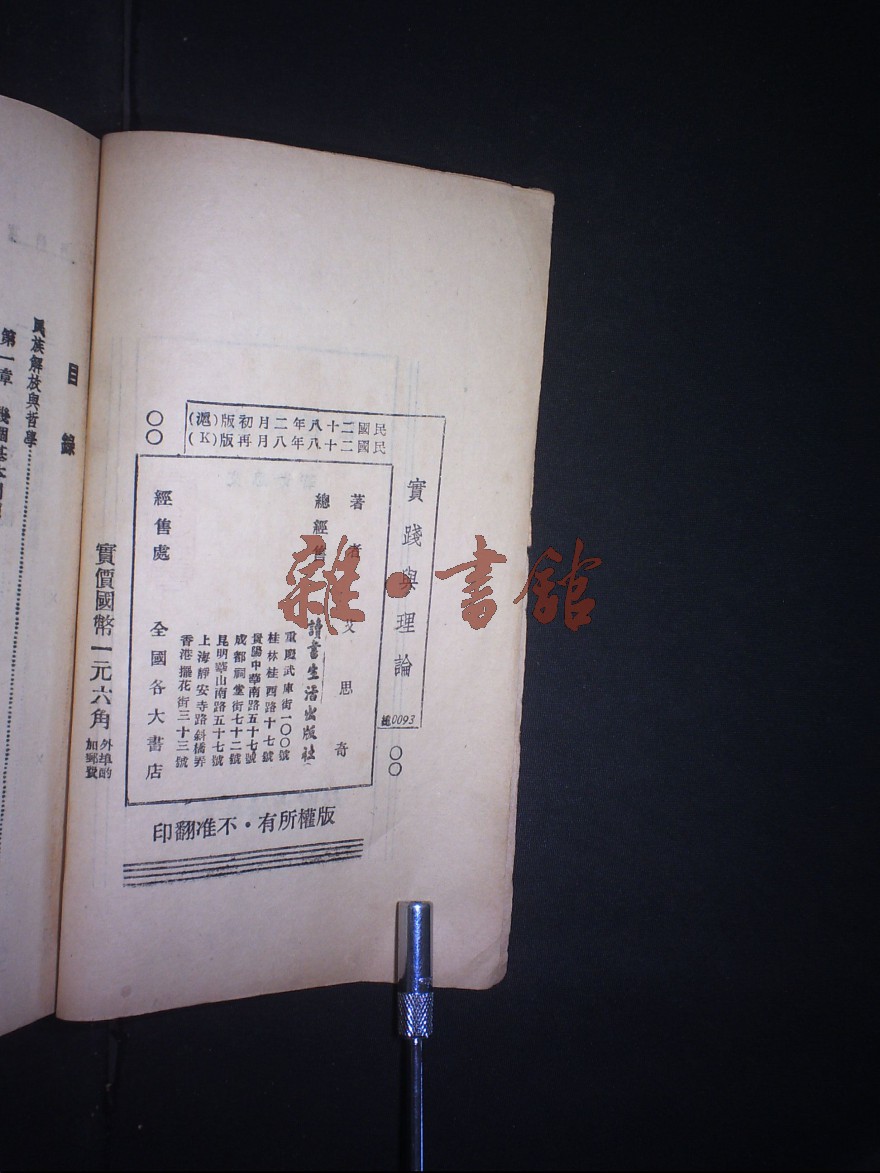 民國二十八年二月初版(滬)
民國二十八年八月再版(K)
實踐與理論
總0093
著者 艾思奇
總經售 讀書生活出版社
重慶武庫街一〇〇號
桂林桂西路十七號
貴陽中華南路五十七號
成都祠堂街七十二號
昆明華山南路五十七號
上海靜安寺路斜橋弄
香港擺花街三十三號
經售處 全國各大書店
實價國幣一元六角 外埠酌加郵費
版權所有・不准翻印
目錄
民族解放與哲學
第一章
雜・書館